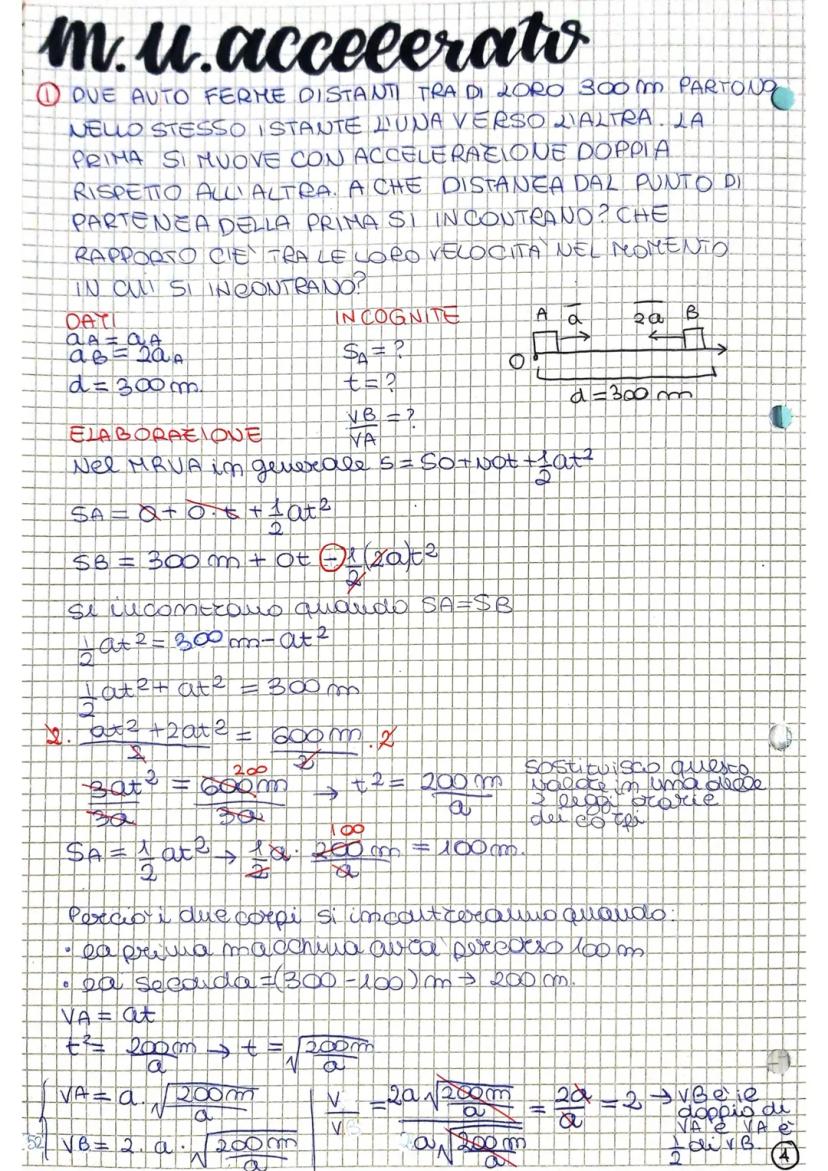 m.u.accelerato
① DUE AUTO FERME DISTANTI TRA DI LORO 300 m PARTONO
NELLO STESSO ISTANTE L'UNA VERSO L'ALTRA. LA
PRIMA SI MUOVE CON ACCELERAZIONE DOPPIA
RISPETTO ALL'ALTRA. A CHE DISTANZA DAL PUNTO DI
PARTENZA DELLA PRIMA SI INCONTRANO? CHE
RAPPORTO C'E' TRA LE LORO VELOCITA' NEL MOMENTO
IN CUI SI INCONTRANO?
DATI
aA = aA
aB = 2aA
d = 300 m.
INCOGNITE
SA = ?
t = ?
VB/VA = ?
A a 2a B
O
d = 300 m
ELABORAZIONE
Nel MRUA in generale S = S0 + V0t + 1/2 at²
SA = 0 + 0·t + 1/2 at²
SB = 300 m + 0t - 1/2 (2a)t²
Si incontrano quando SA = SB
1/2 at² = 300 m - at²
1/2 at² + at² = 300 m
2. (at² + 2at²)/2 = 600 m/2 . 2
3at²/3a = 600 m/3a 200 → t² = 200 m/a
sostituisco questo
valore in una delle
2 leggi orarie
dei corpi
SA = 1/2 at² → 1/2 a · 200 m/a 100 = 100 m.
Perciò i due corpi si incontreranno quando:
• la prima macchina avrà percorso 100 m
• la seconda = (300 - 100) m → 200 m.
VA = at
t² = 200 m/a → t = √(200 m/a)
VA = a · √(200 m/a)
VB = 2 · a · √(200 m/a)
V/V = 2a√(200 m/a) / a√(200 m/a) = 2a/a = 2 → VB è il
doppio di
VA e VA è
1/2 di VB.
52
1